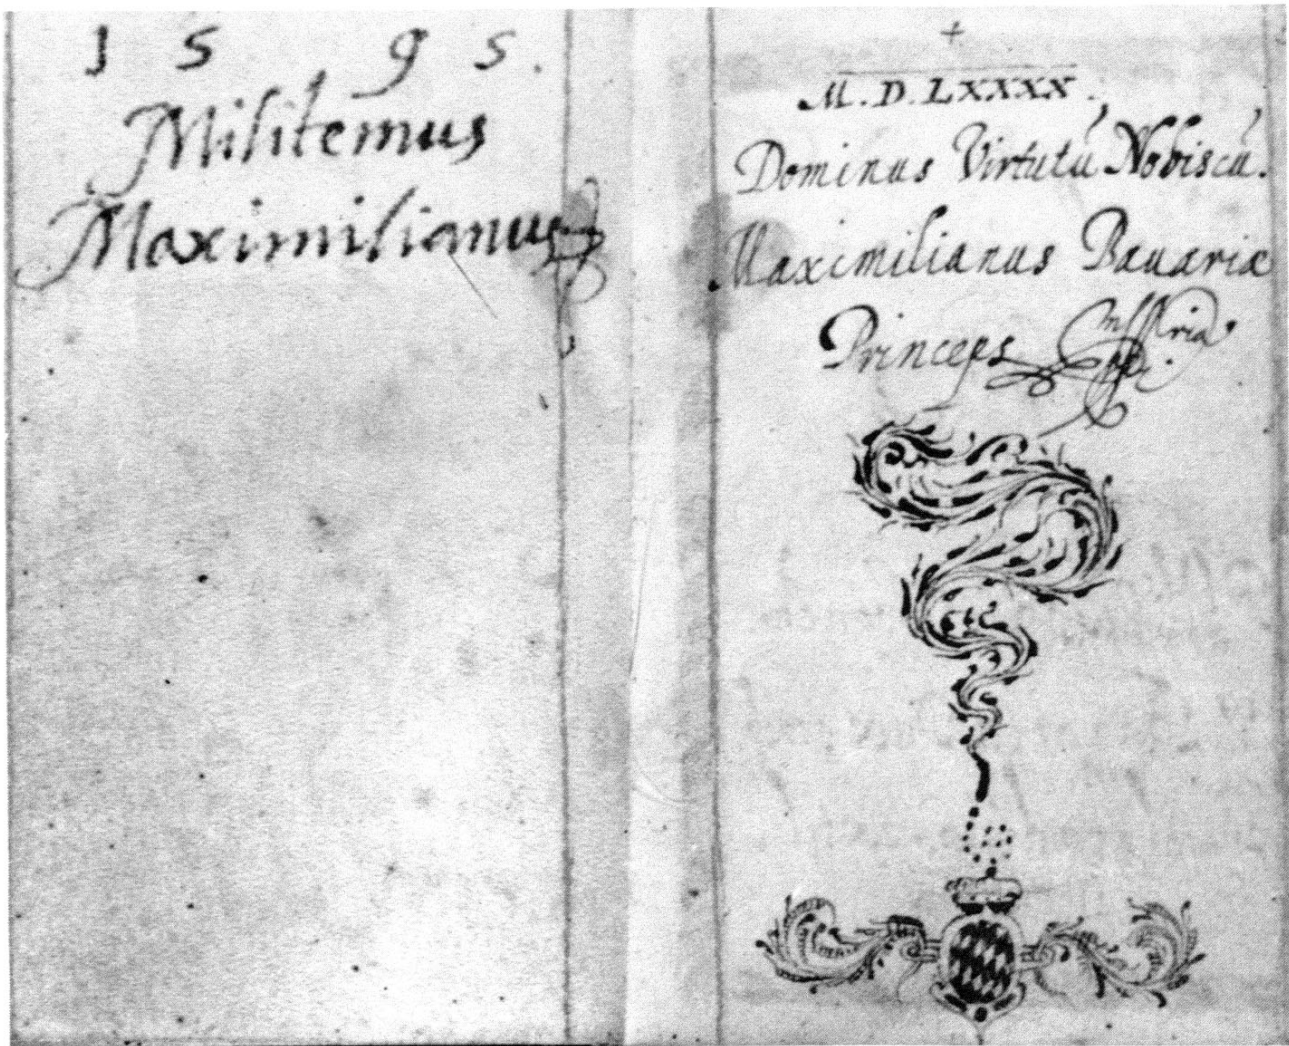 1595.
Militemus
Maximilianus
M.D.LXXXX.
Dominus Virtutũ Nobiscũ.
Maximilianus Bauariæ
Princeps mſſ ria